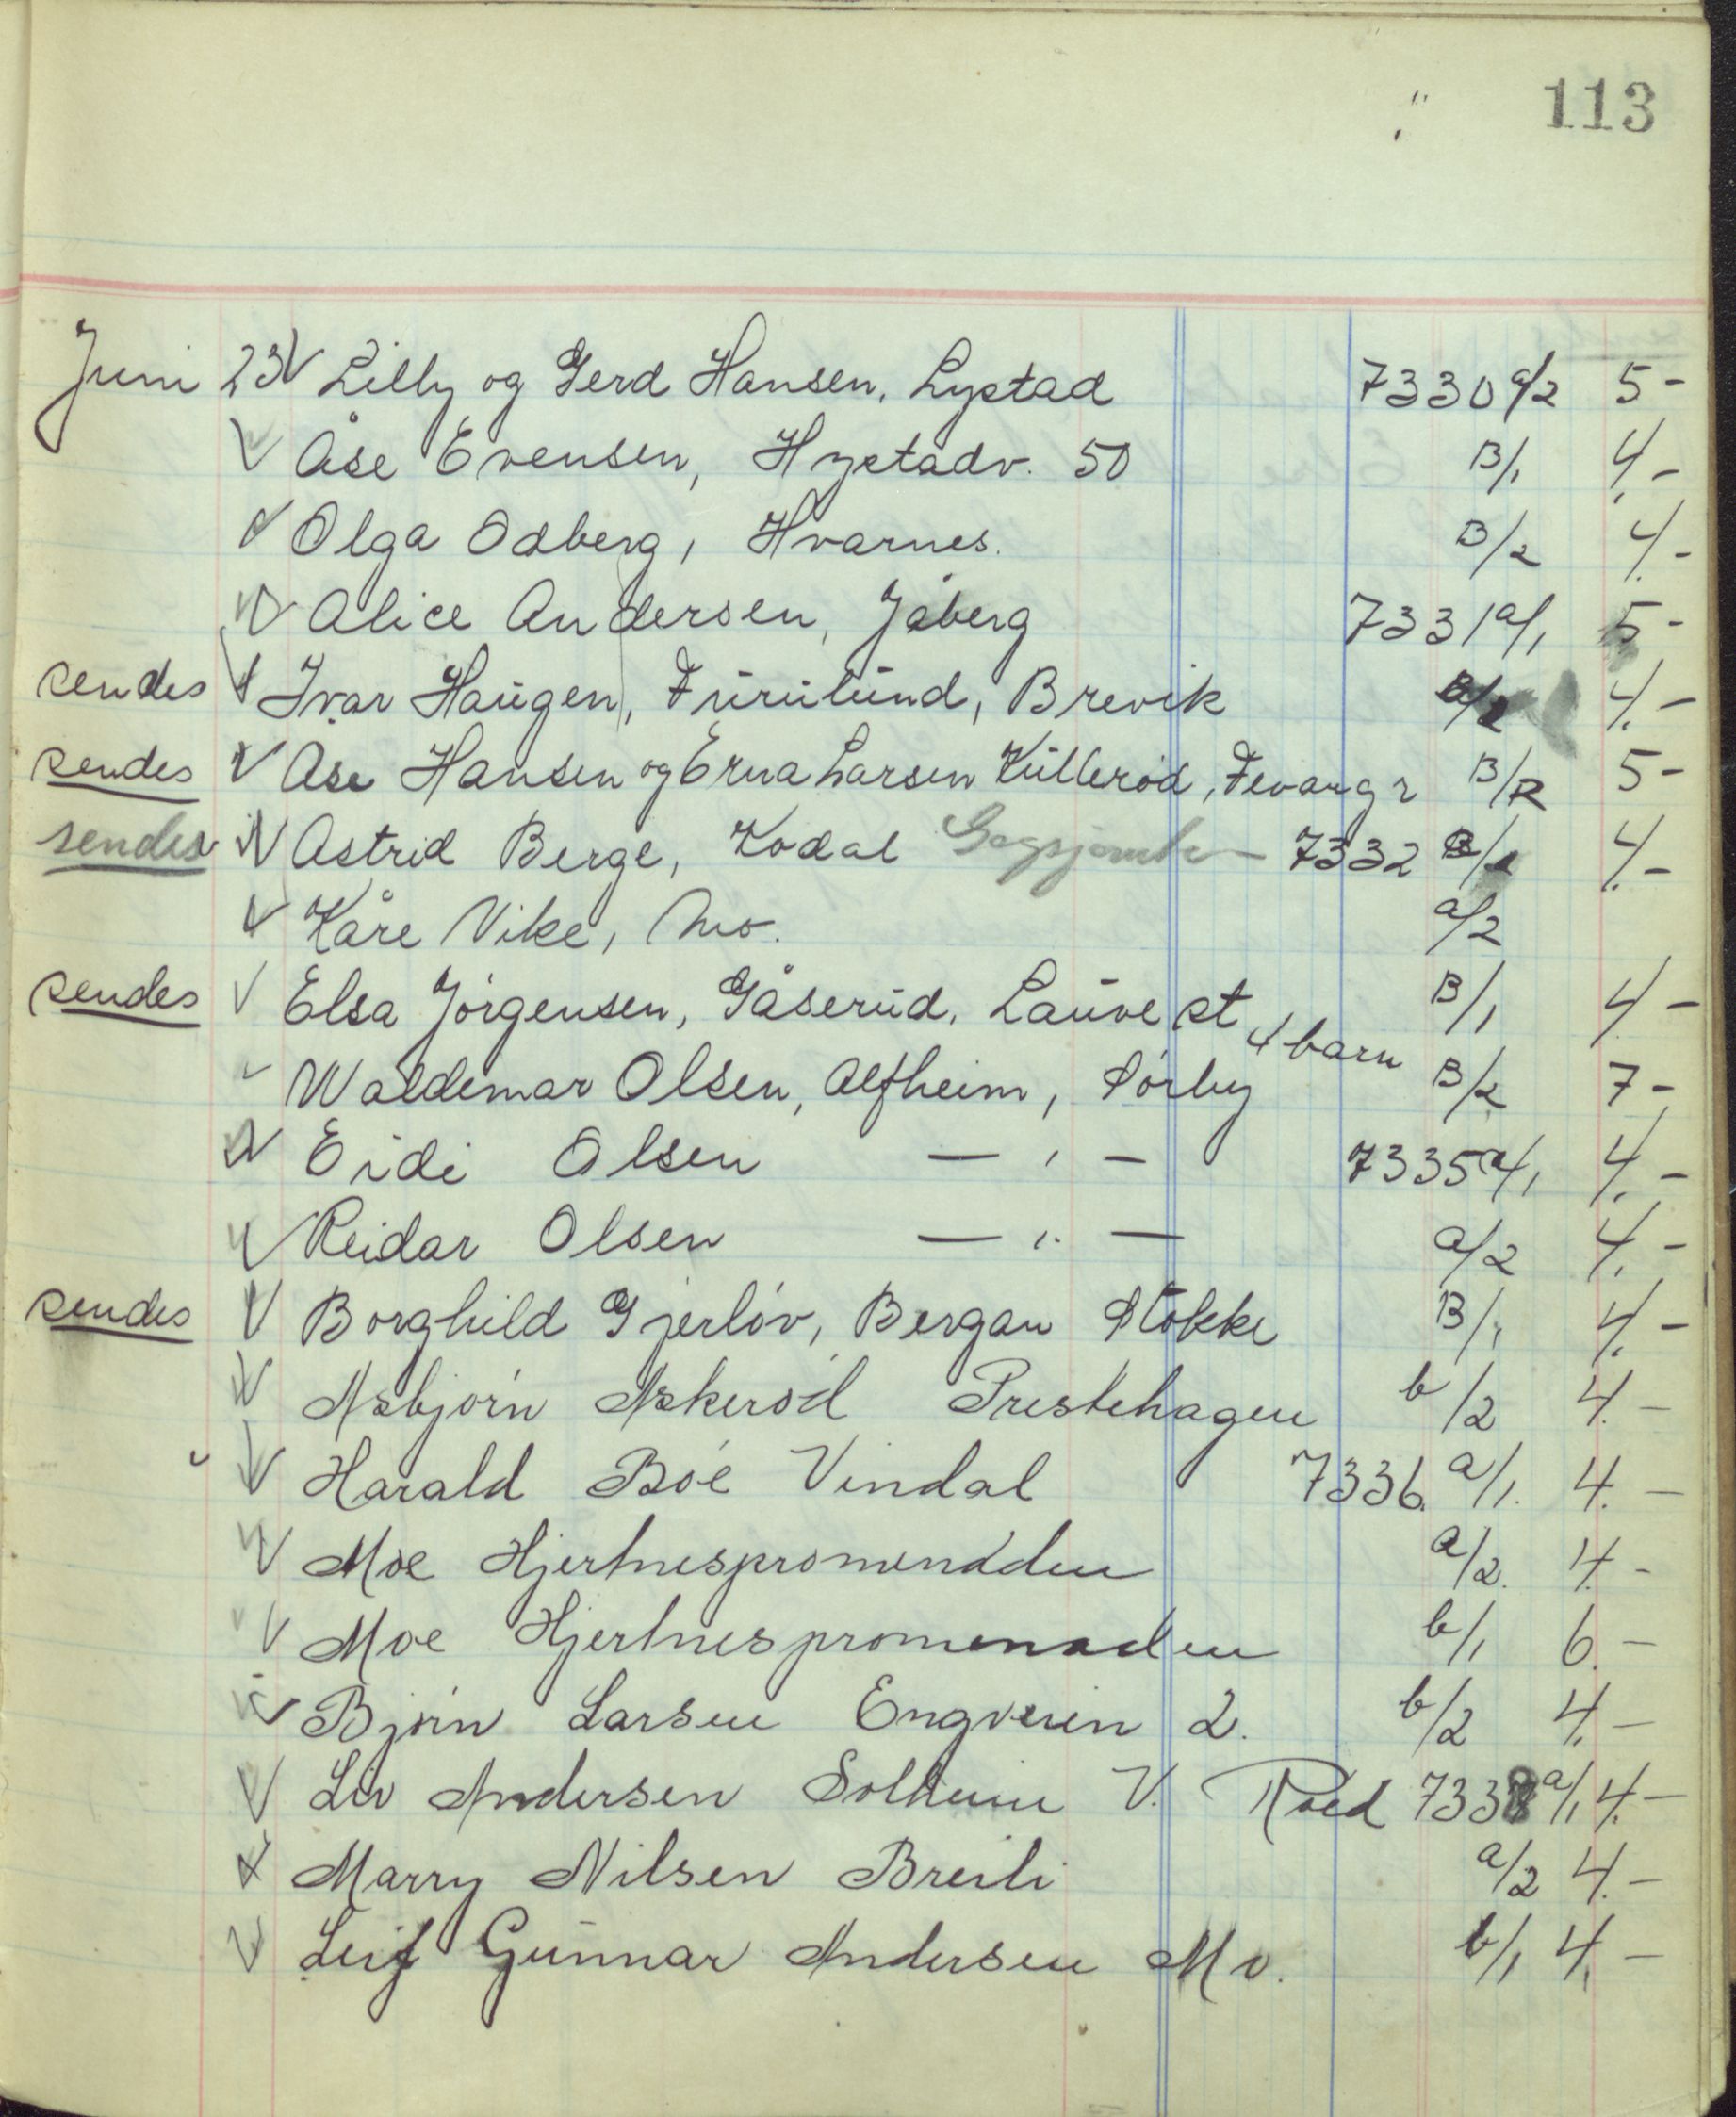 113
Juni 23 V Lilly og Gerd Hansen, Lystad 7330 a/2 5-
V Åse Evensen, Hystadv. 50 B/1 4.-
V Olga Odberg, Hvarnes. B/2 4.-
V Alice Andersen, Jåberg 7331 a/1 5-
sendes V Ivar Haugen, Furulund, Brevik 4.-
sendes V Åse Hansen og Erna Larsen Küllerød, Fevang r B/2 5-
sendes V Astrid Berge, Kodal 7332 B/1 4.-
V Kåre Vike, Mo. a/2
sendes V Elsa Jörgensen, Gåserüd, Laüve st B/1 4-
V Waldemar Olsen, Alfheim, Sörby 4 barn B/2 7-
V Eidi Olsen — , — 7335 a/1 4.-
V Reidar Olsen — ,. — a/2 4.-
sendes V Borghild Gjerlöv, Bergan Stokke B/1 4.-
V Asbjørn Askerød Prestehagen b/2 4.-
V Harald Böe Vindal 7336. a/1. 4.-
V Moe Hjertnespromenaden a/2. 4.-
V Moe Hjertnespromenaden b/1 6.-
V Bjørn Larsen Engveien 2. b/2 4.-
V Liv Andersen Solheim V. Roed 7338 a/1 4.-
V Marry Nilsen Breili a/2 4.-
V Leif Gunnar Andersen Mo. b/1 4.-